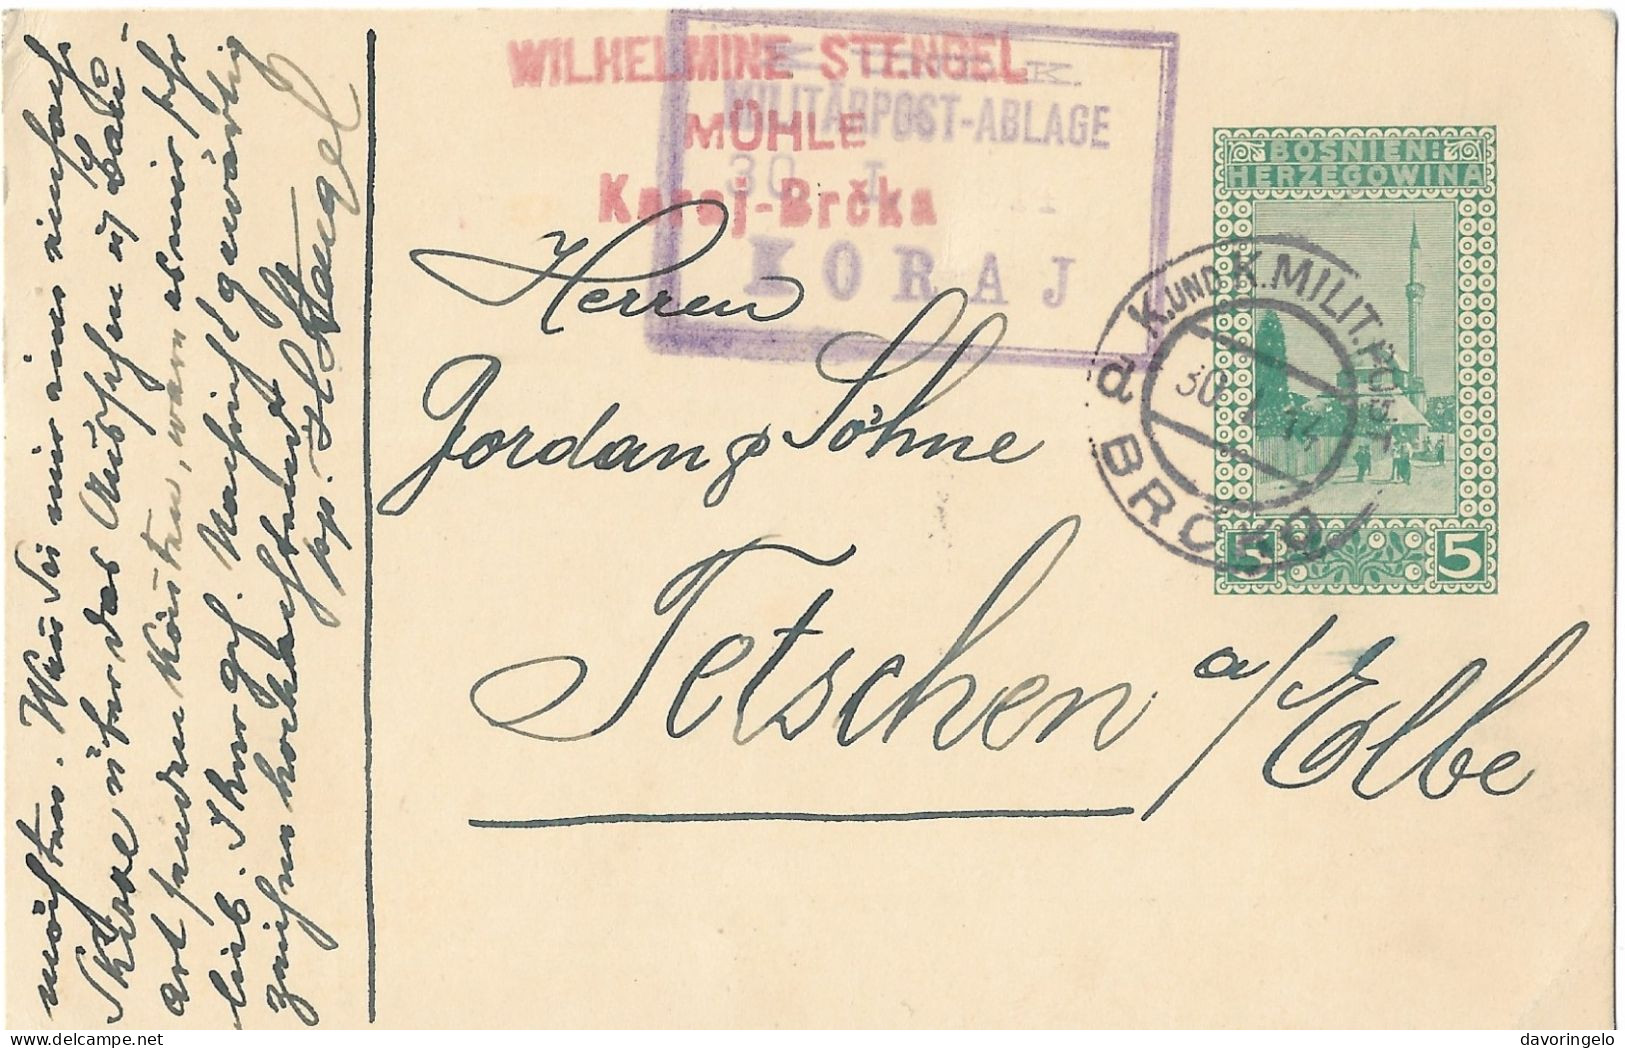 WILHELMINE STENGEL
MÜHLE
Karaj-Brčka
K.
MILITÄRPOST-ABLAGE
30 I.
KORAJ
BOSNIEN:
HERZEGOWINA
K. UND K. MILIT. POST
d
30 I 14
BRČKO
5 5
Herren
Jordan & Söhne
Tetschen a/Elbe
möchten. Wenn Sie mir eine einfache
Skizze über das Aussehen u
Art senden könnten, wäre es mir sehr
lieb. Ihrer gef. Nachricht gewärtig
zeichne hochachtend
pp. Stengel
davoringelo